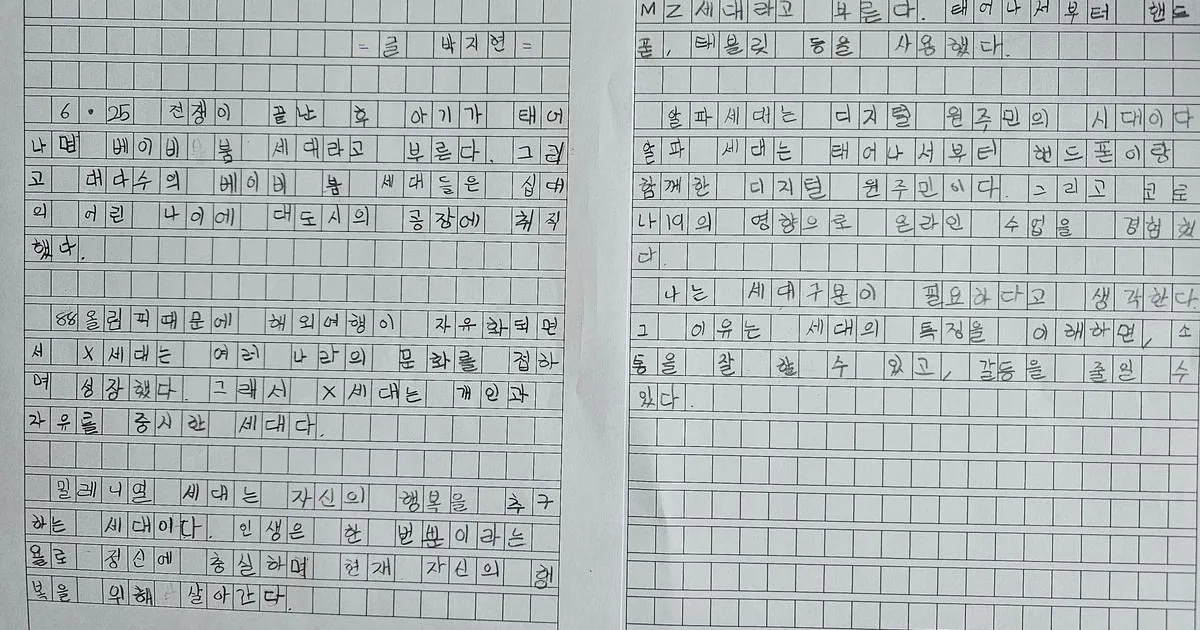 = 글 박지현 =
6·25 전쟁이 끝난 후 아기가 태어
나면 베이비 붐 세대라고 부른다. 그리
고 대다수의 베이비 붐 세대들은 십대
의 어린 나이에 대도시의 공장에 취직
했다.
88올림픽때문에 해외여행이 자유화되면
서 X세대는 여러 나라의 문화를 접하
며 성장했다. 그래서 X세대는 개인과
자유를 중시한 세대다.
밀레니얼 세대는 자신의 행복을 추구
하는 세대이다. 인생은 한 번뿐이라는
욜로 정신에 충실하며 현재 자신의 행
복을 위해 살아간다.
MZ세대라고 부른다. 태어나서부터 핸드
폰, 태블릿 등을 사용했다.
알파세대는 디지털 원주민의 시대이다
알파 세대는 태어나서부터 핸드폰이랑
함께한 디지털 원주민이다. 그리고 코로
나19의 영향으로 온라인 수업을 경험했
다.
나는 세대구문이 필요하다고 생각한다
그 이유는 세대의 특징을 이해하면, 소
통을 잘 할 수 있고, 갈등을 줄일 수
있다.